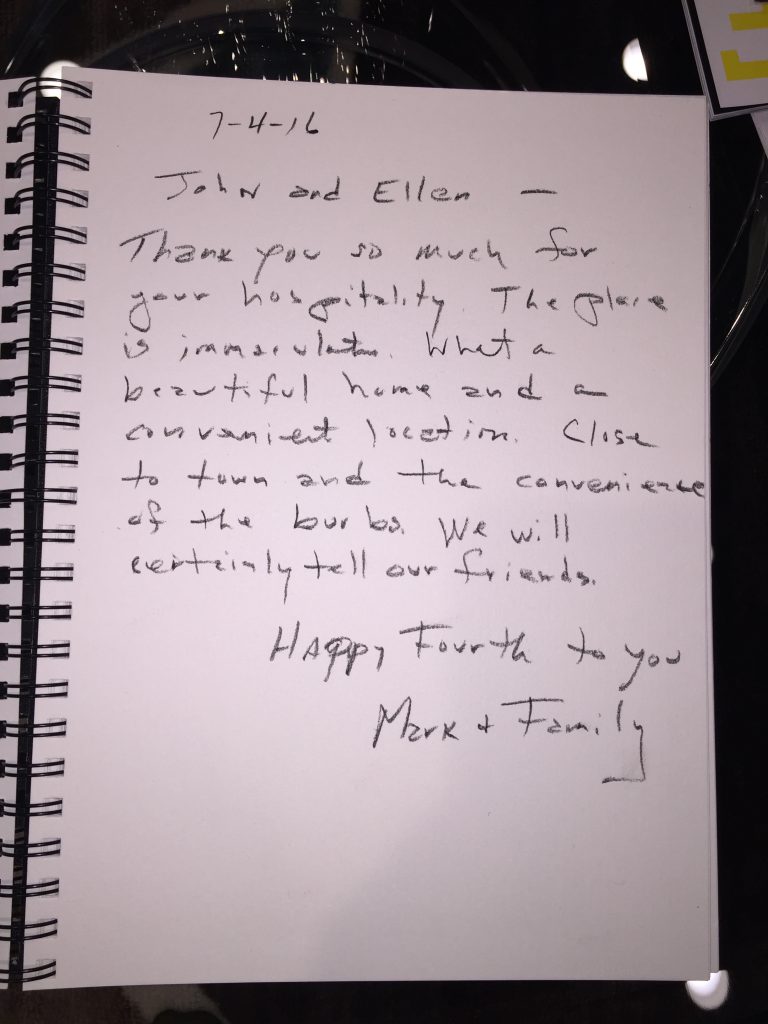 7-4-16
John and Ellen —
Thank you so much for
your hospitality. The place
is immaculate. What a
beautiful home and a
convenient location. Close
to town and the convenience
of the burbs. We will
certainly tell our friends.
Happy Fourth to you
Mark + Family